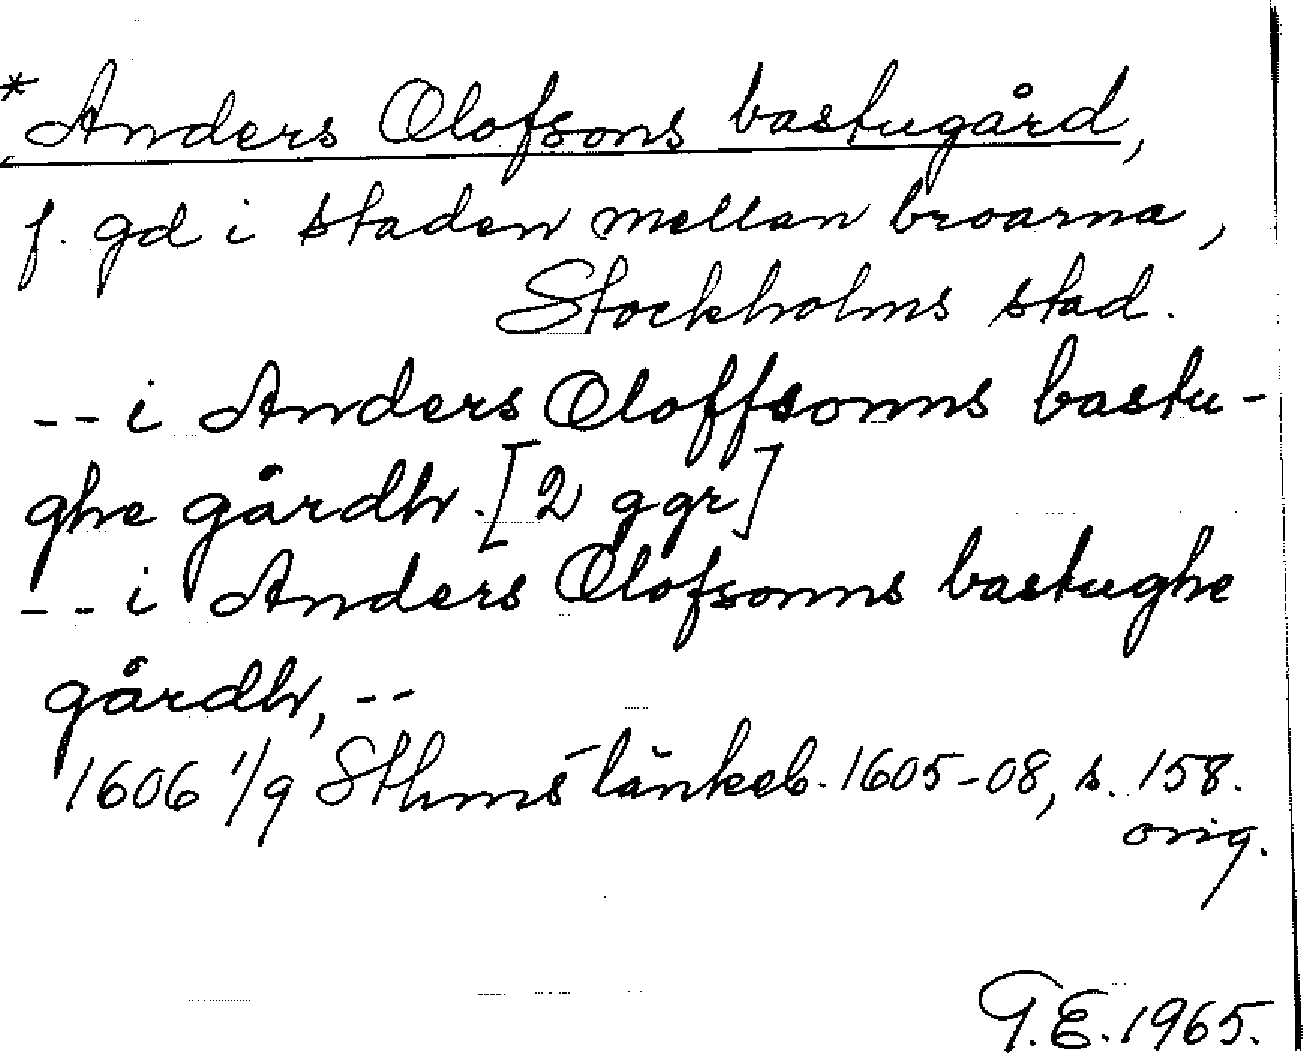 * Anders Olofsons bastugård,
f. gd i staden mellan broarna,
Stockholms stad.
-- i Anders Oloffsonns bastu-
ghe gårdh. [2 ggr]
-- i Anders Olofsonns bastughe
gårdh, --
1606 1/9 Sthms tänkeb. 1605-08, s. 158.
orig.
T.E. 1965.